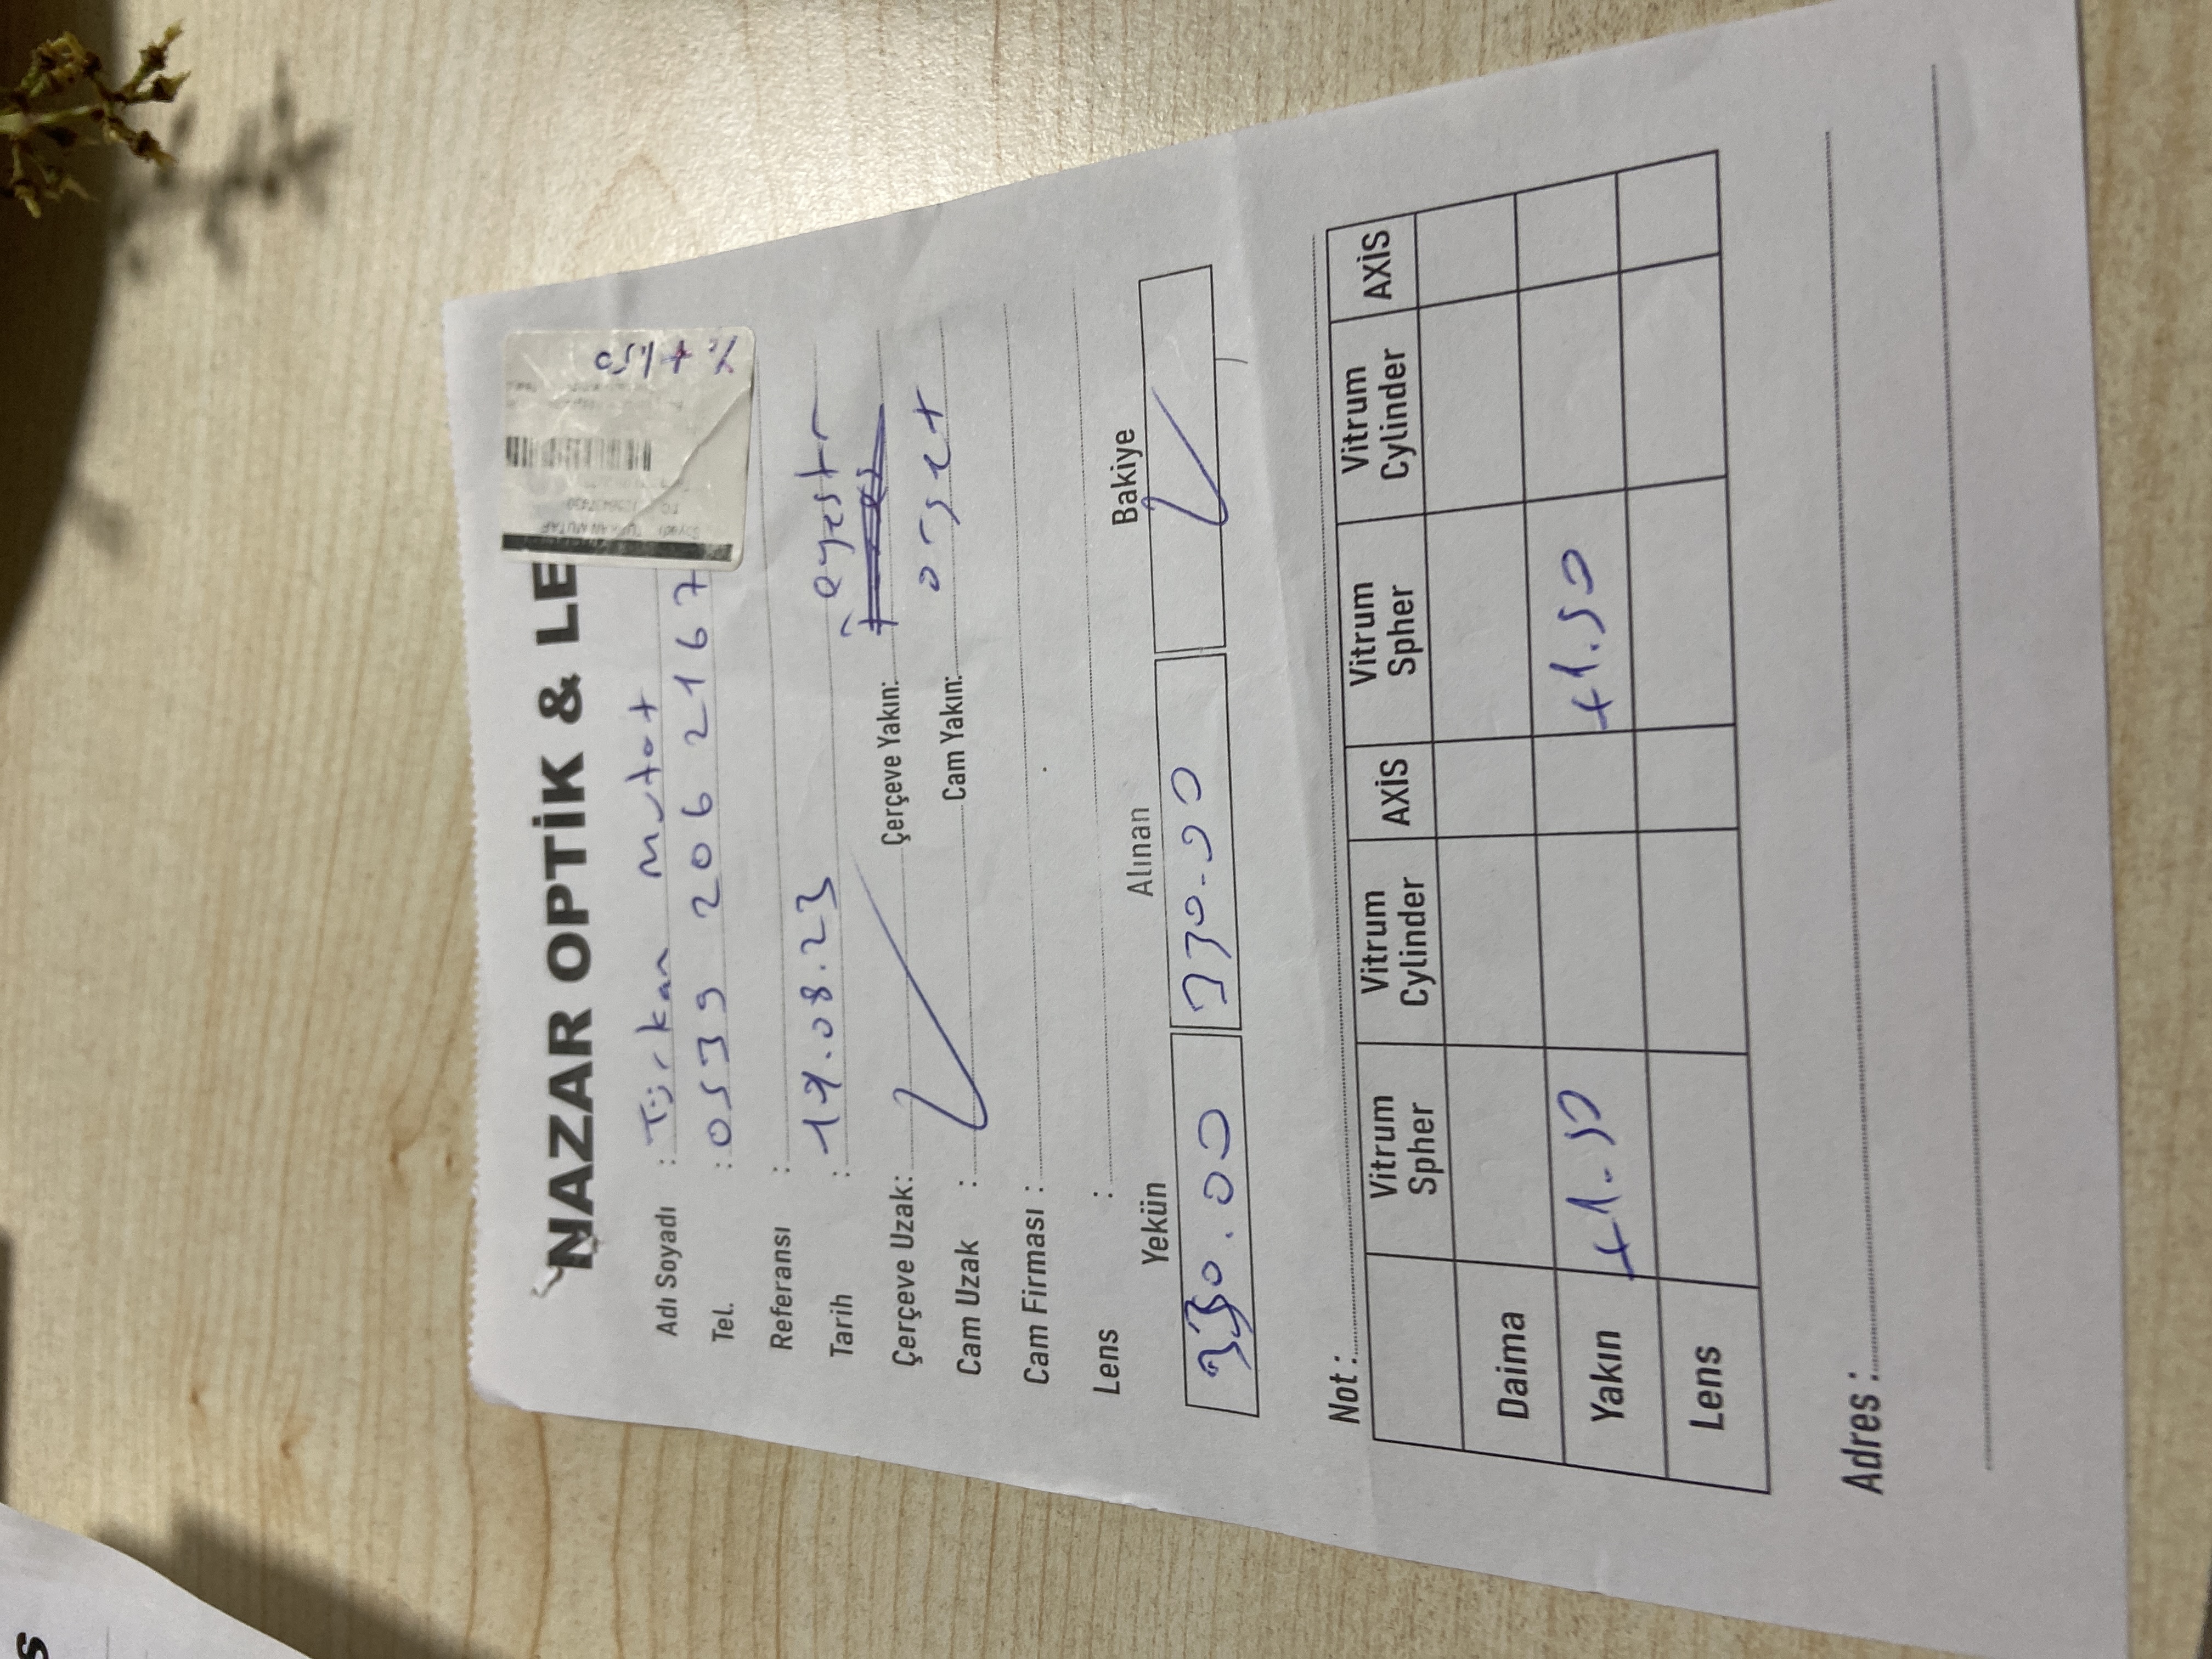 s
NAZAR OPTİK & LE
Adı Soyadı : Türkan Mutaf
Tel. : 0539 206 2167
Referansı :
Tarih : 17.08.23
Çerçeve Uzak: Çerçeve Yakın: eyestr
Cam Uzak : Cam Yakın:
Cam Firması :
Lens :
Yekün Alınan Bakiye
330.00 330.00
Not :
Vitrum Spher Vitrum Cylinder AXİS Vitrum Spher Vitrum Cylinder AXİS
Daima
Yakın +1.50 +1.50
Lens
Adres :
Y: +1,50